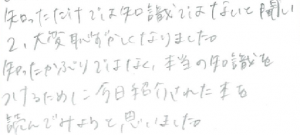 知っただけでは知識ではないと聞い
て、大変恥ずかしくなりました。
知ったかぶりではなく、本当の知識を
つけるために今日紹介された本を
読んでみようと思いました。